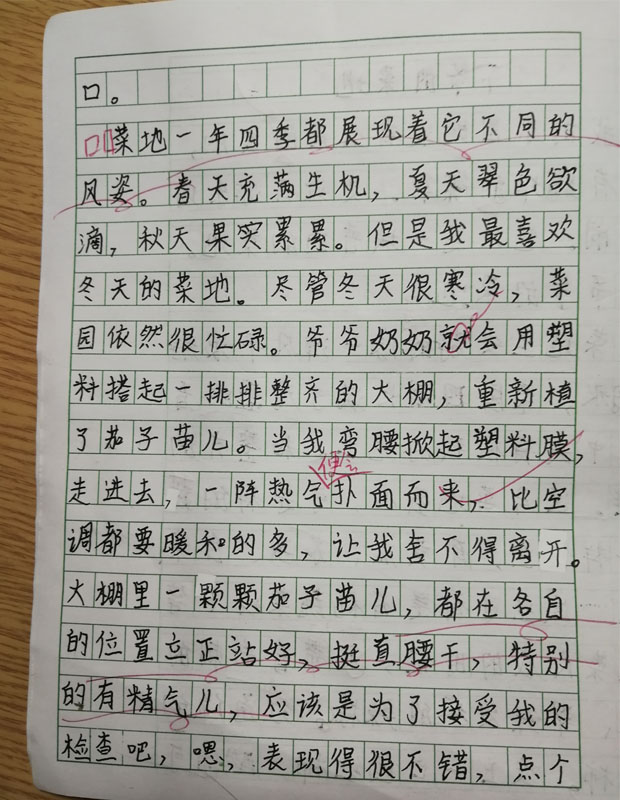 口。
菜地一年四季都展现着它不同的
风姿。春天充满生机，夏天翠色欲
滴，秋天果实累累。但是我最喜欢
冬天的菜地。尽管冬天很寒冷，菜
园依然很忙碌。爷爷奶奶就会用塑
料搭起一排排整齐的大棚，重新植
了茄子苗儿。当我弯腰掀起塑料膜，
便会
走进去，一阵热气扑面而来，比空
调都要暖和的多，让我舍不得离开。
大棚里一颗颗茄子苗儿，都在各自
的位置立正站好，挺直腰干，特别
的有精气儿，应该是为了接受我的
检查吧，嗯，表现得很不错，点个